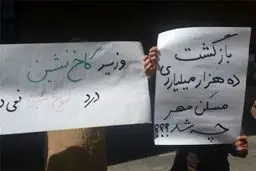 بازگشت
ده هزار میلیاردی
مسکن مهر
چه شد؟؟؟
وزیر کاخ نشین
درد